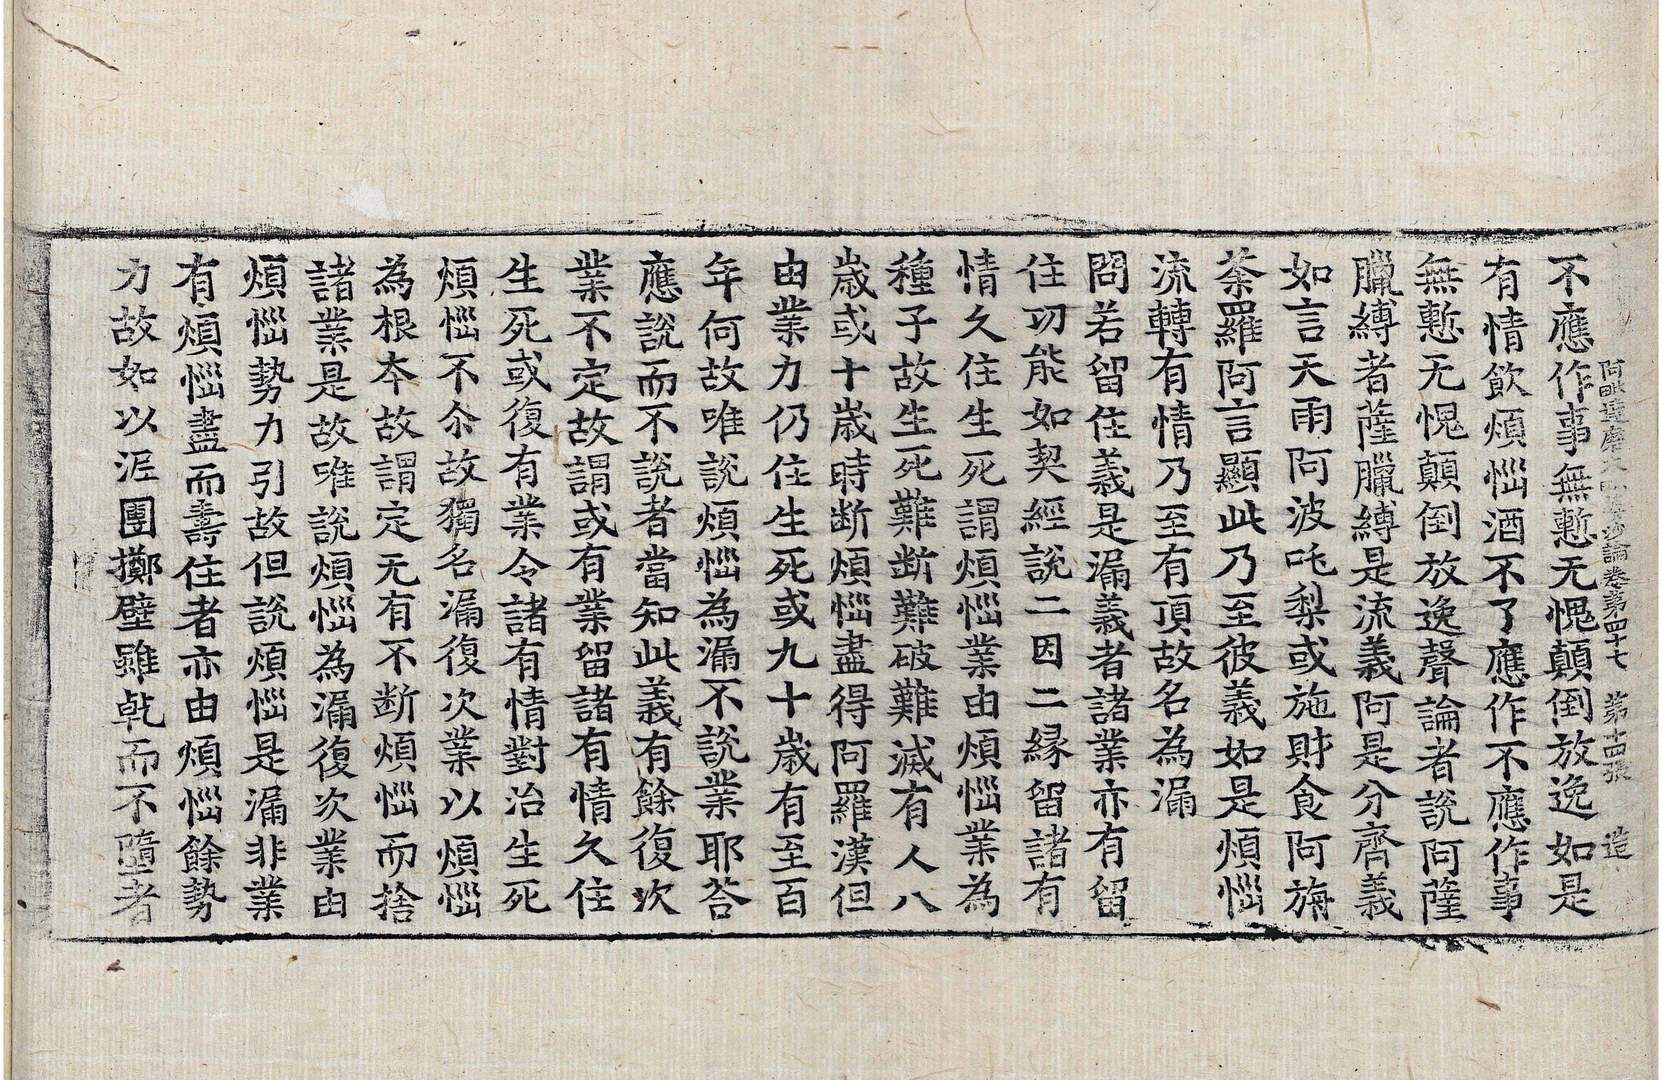 阿毗達磨大毗婆沙論卷第四十七 第十四張 造
不應作事無慙无愧顛倒放逸如是
有情飲煩惱酒不了應作不應作事
無慙无愧顛倒放逸聲論者說阿薩
臘縛者薩臘縛是流義阿是分齊義
如言天雨阿波吒梨或施財食阿旃
荼羅阿言顯此乃至彼義如是煩惱
流轉有情乃至有頂故名為漏
問若留住義是漏義者諸業亦有留
住功能如契經說二因二緣留諸有
情久住生死謂煩惱業由煩惱業為
種子故生死難斷難破難滅有人八
歲或十歲時斷煩惱盡得阿羅漢但
由業力仍住生死或九十歲有至百
年何故唯說煩惱為漏不說業耶荅
應說而不說者當知此義有餘復次
業不定故謂或有業留諸有情久住
生死或復有業令諸有情對治生死
煩惱不尒故獨名漏復次業以煩惱
為根本故謂定无有不断煩惱而捨
諸業是故唯說煩惱為漏復次業由
煩惱勢力引故但說煩惱是漏非業
有煩惱盡而壽住者亦由煩惱餘勢
力故如以泥團擲壁雖乹而不墮者